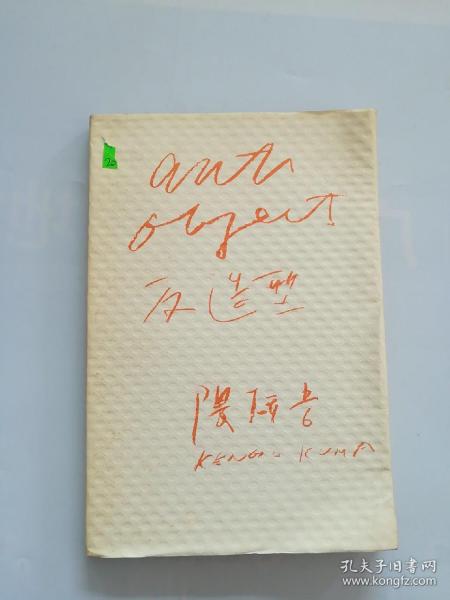 20
anti
object
反造型
隈研吾
KENGO KUMA
孔夫子旧书网
www.kongfz.com